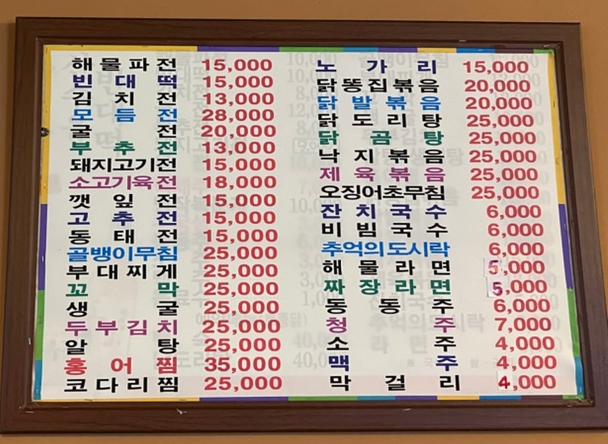 해물파전 15,000
빈대떡 15,000
김치전 13,000
모듬전 28,000
굴전 20,000
부추전 13,000
돼지고기전 15,000
소고기육전 18,000
깻잎전 15,000
고추전 15,000
동태전 15,000
골뱅이무침 25,000
부대찌게 25,000
꼬막 25,000
생굴 25,000
두부김치 25,000
알탕 25,000
홍어찜 35,000
코다리찜 25,000
노가리 15,000
닭똥집볶음 20,000
닭발볶음 20,000
닭도리탕 25,000
닭곰탕 25,000
낙지볶음 25,000
제육볶음 25,000
오징어초무침 25,000
잔치국수 6,000
비빔국수 6,000
추억의도시락 6,000
해물라면 5,000
짜장라면 5,000
동동주 6,000
청주 7,000
소주 4,000
맥주 4,000
막걸리 4,000